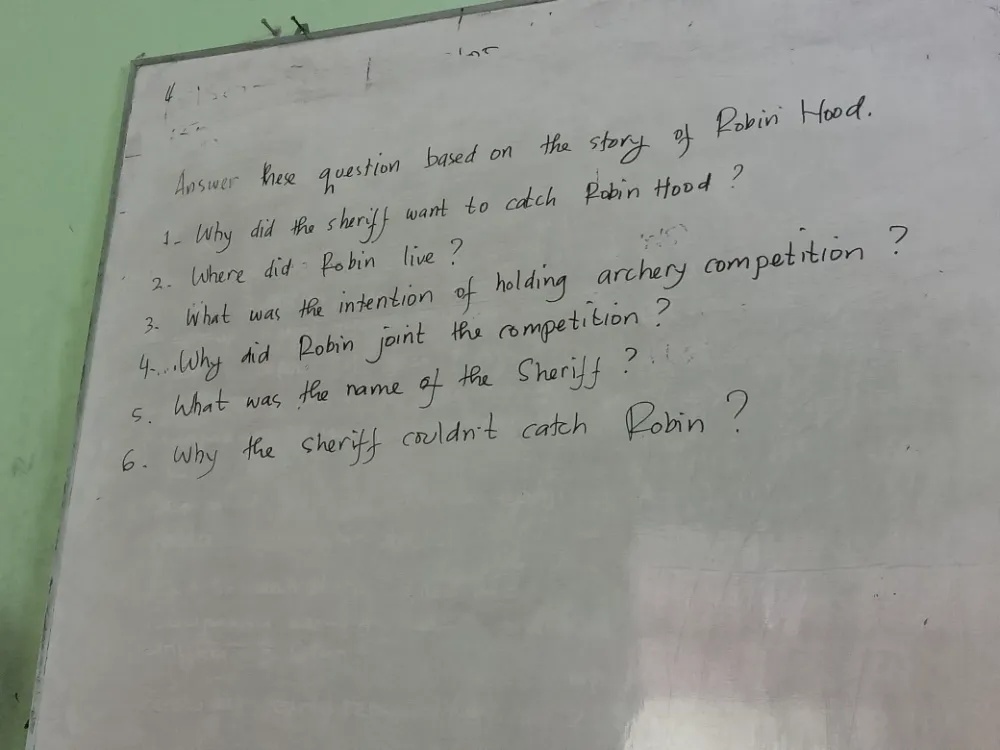 Answer these question based on the story of Robin Hood.
1- Why did the sheriff want to catch Robin Hood ?
2. Where did Robin live ?
3. What was the intention of holding archery competition ?
4. Why did Robin joint the competition ?
5. What was the name of the Sheriff ?
6. Why the sheriff couldn't catch Robin ?